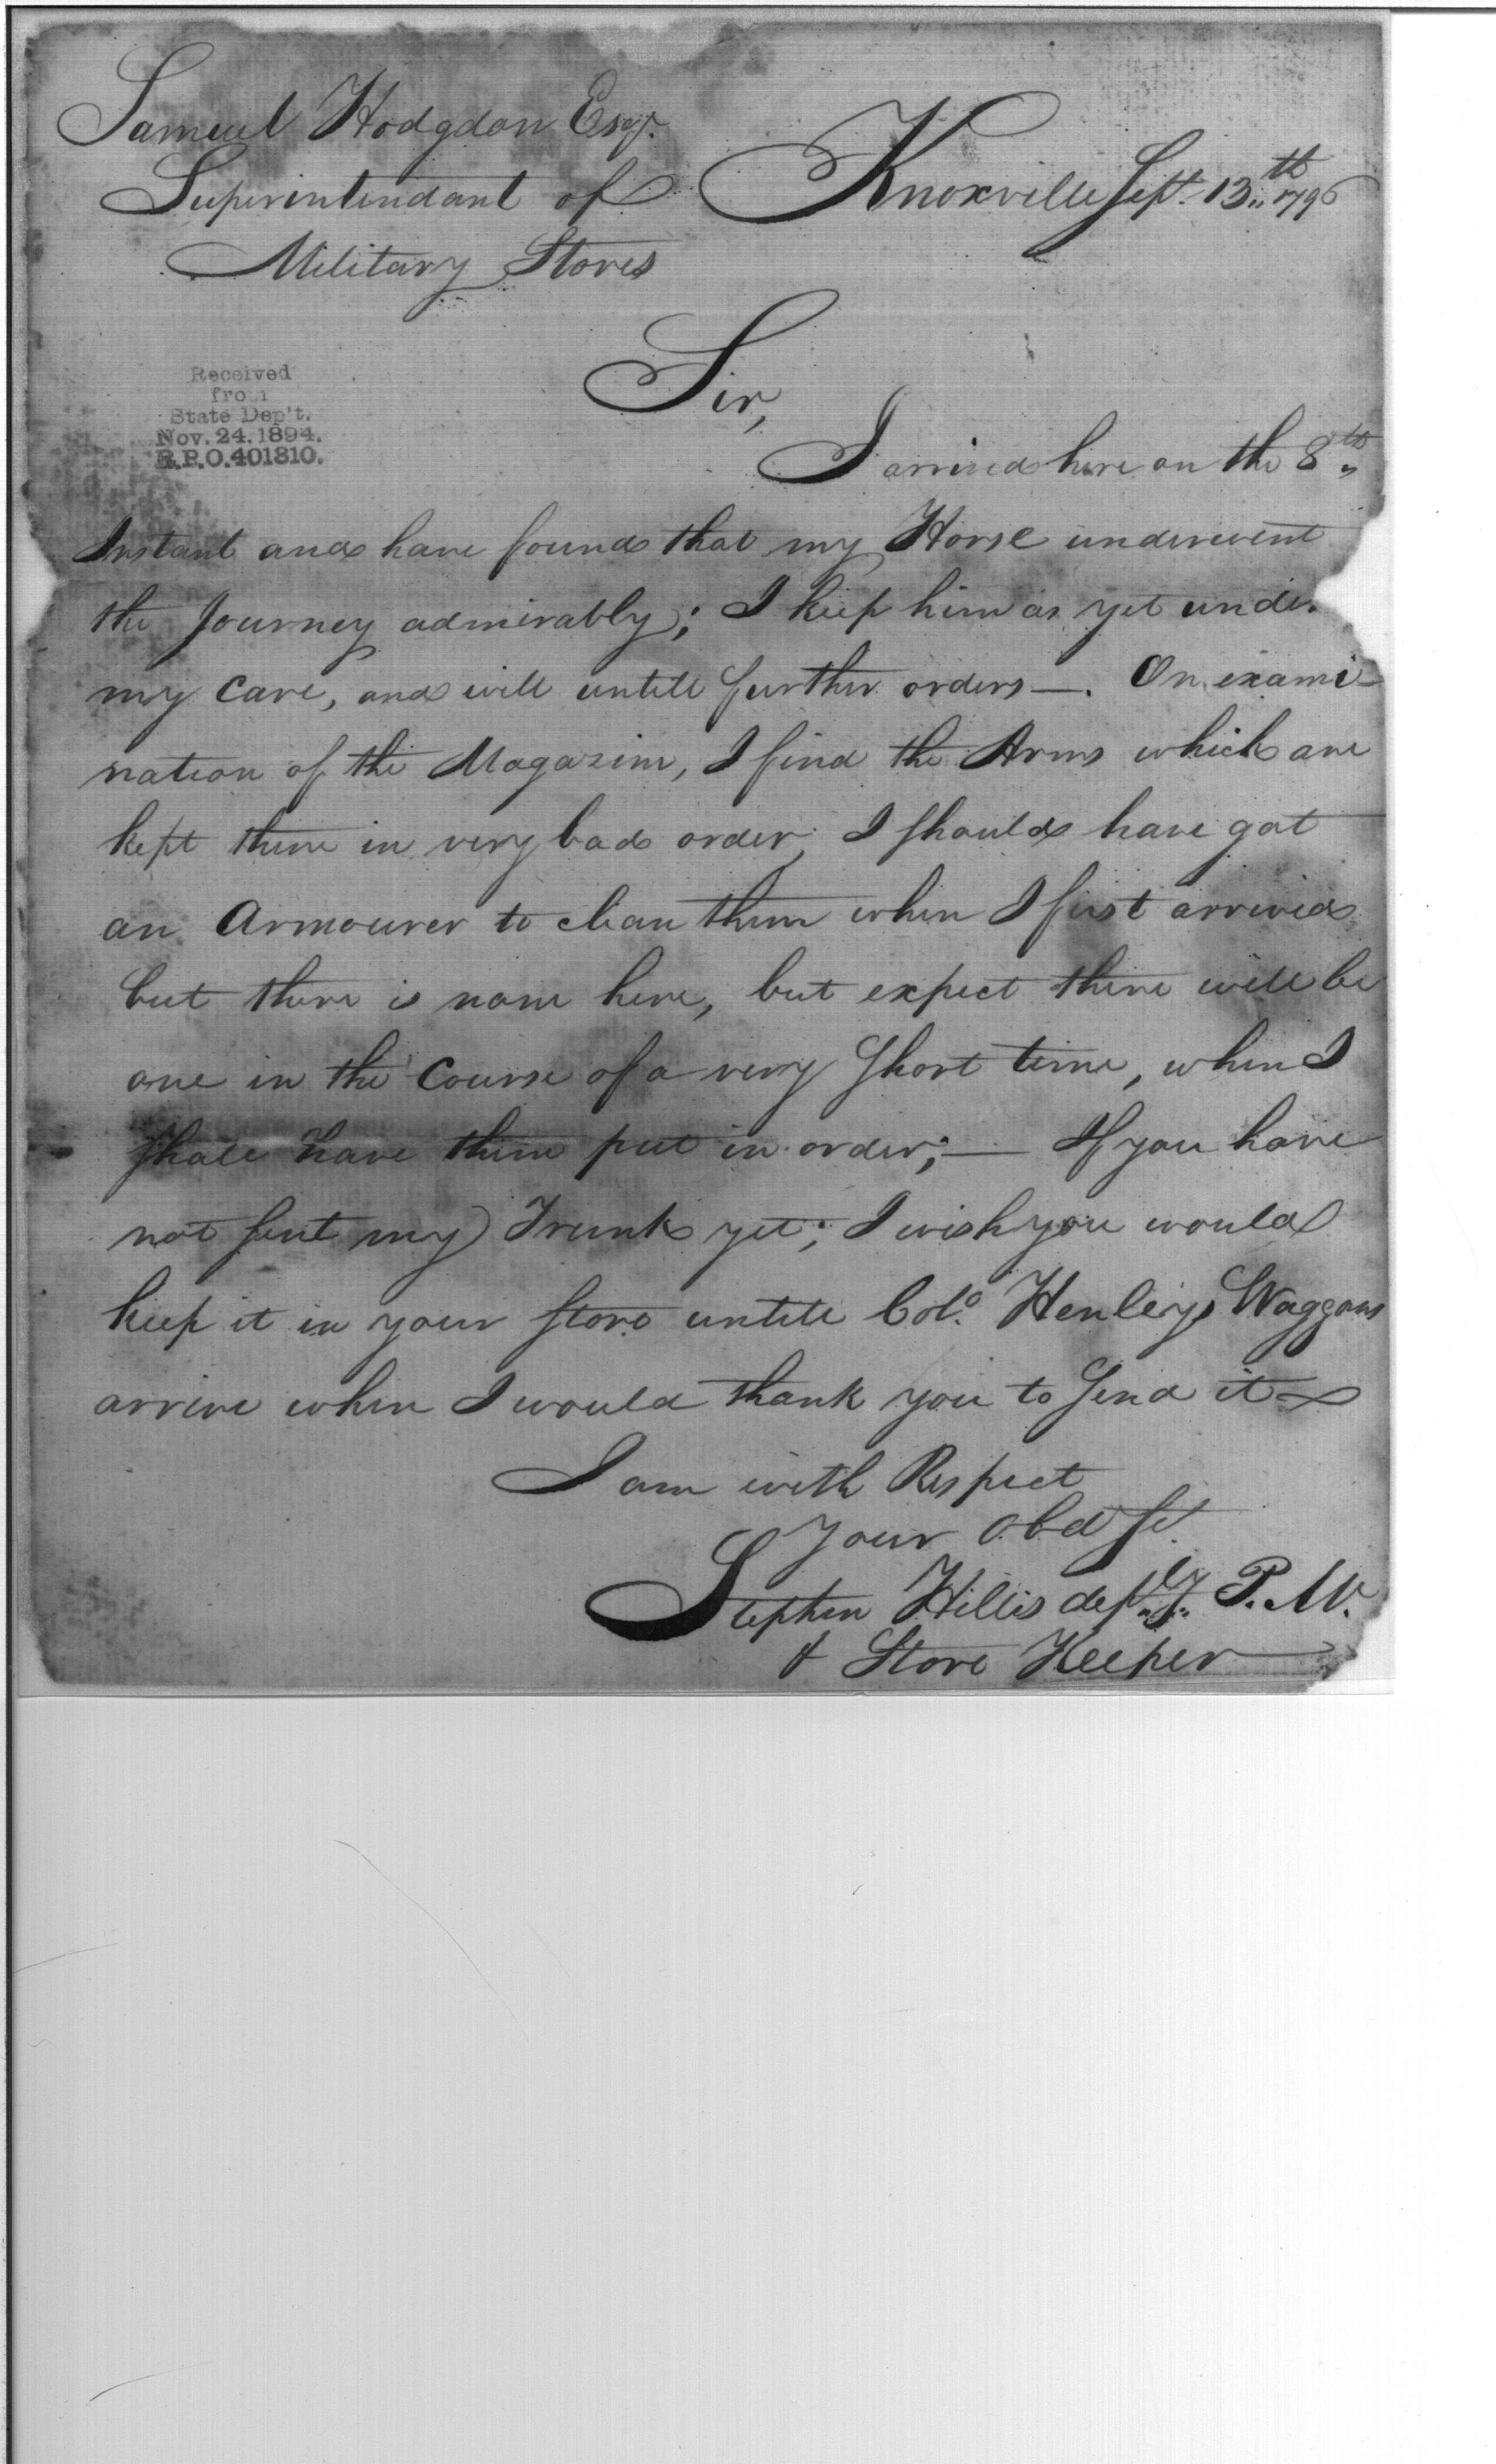 Samuel Hodgdon Esqr.
Superintendant of
Military Stores
Knoxville Sept. 13th 1796
Received
from
State Dep't.
Nov. 24. 1894.
R.P.O. 401810.
Sir,
I arrived here on the 8th
Instant and have found that my Horse underwent
the Journey admirably; I keep him as yet under
my Care, and will untill further orders —. On exami
nation of the Magazine, I find the Arms which are
kept there in very bad order, I should have got
an Armourer to clean them when I first arrived
but there is none here, but expect there will be
one in the Course of a very Short time, when I
shall have them put in order; — If you have
not sent my Trunk yet; I wish you would
keep it in your store untill Colo. Henleys Waggons
arrive when I would thank you to Send it
I am with Respect
Your Obd St.
Stephen Hillis depy. P. M.
& Store Keeper